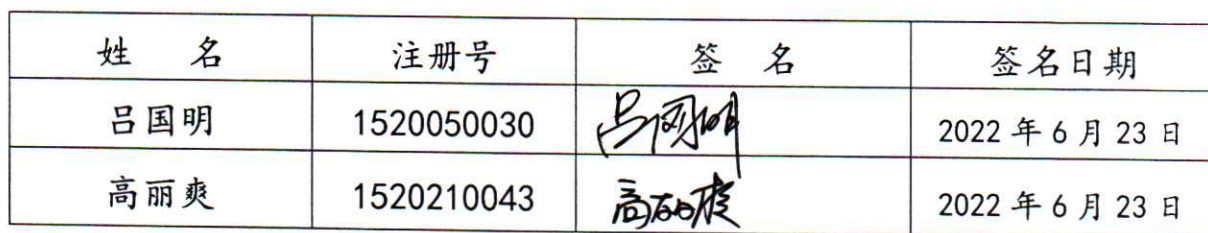 姓 名 注册号 签 名 签名日期
吕国明 1520050030 吕国明 2022 年 6 月 23 日
高丽爽 1520210043 高丽爽 2022 年 6 月 23 日